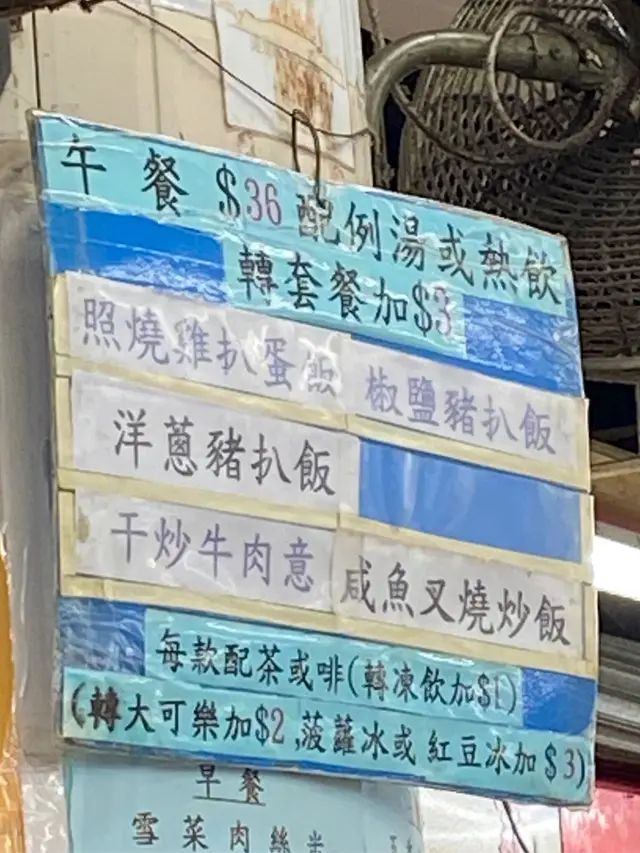 午餐 $36 配例湯或熱飲
轉套餐加$3
照燒雞扒蛋飯 椒鹽豬扒飯
洋蔥豬扒飯
干炒牛肉意 咸魚叉燒炒飯
每款配茶或啡(轉凍飲加$1)
(轉大可樂加$2,菠蘿冰或紅豆冰加$3)
早餐
雪菜肉絲米